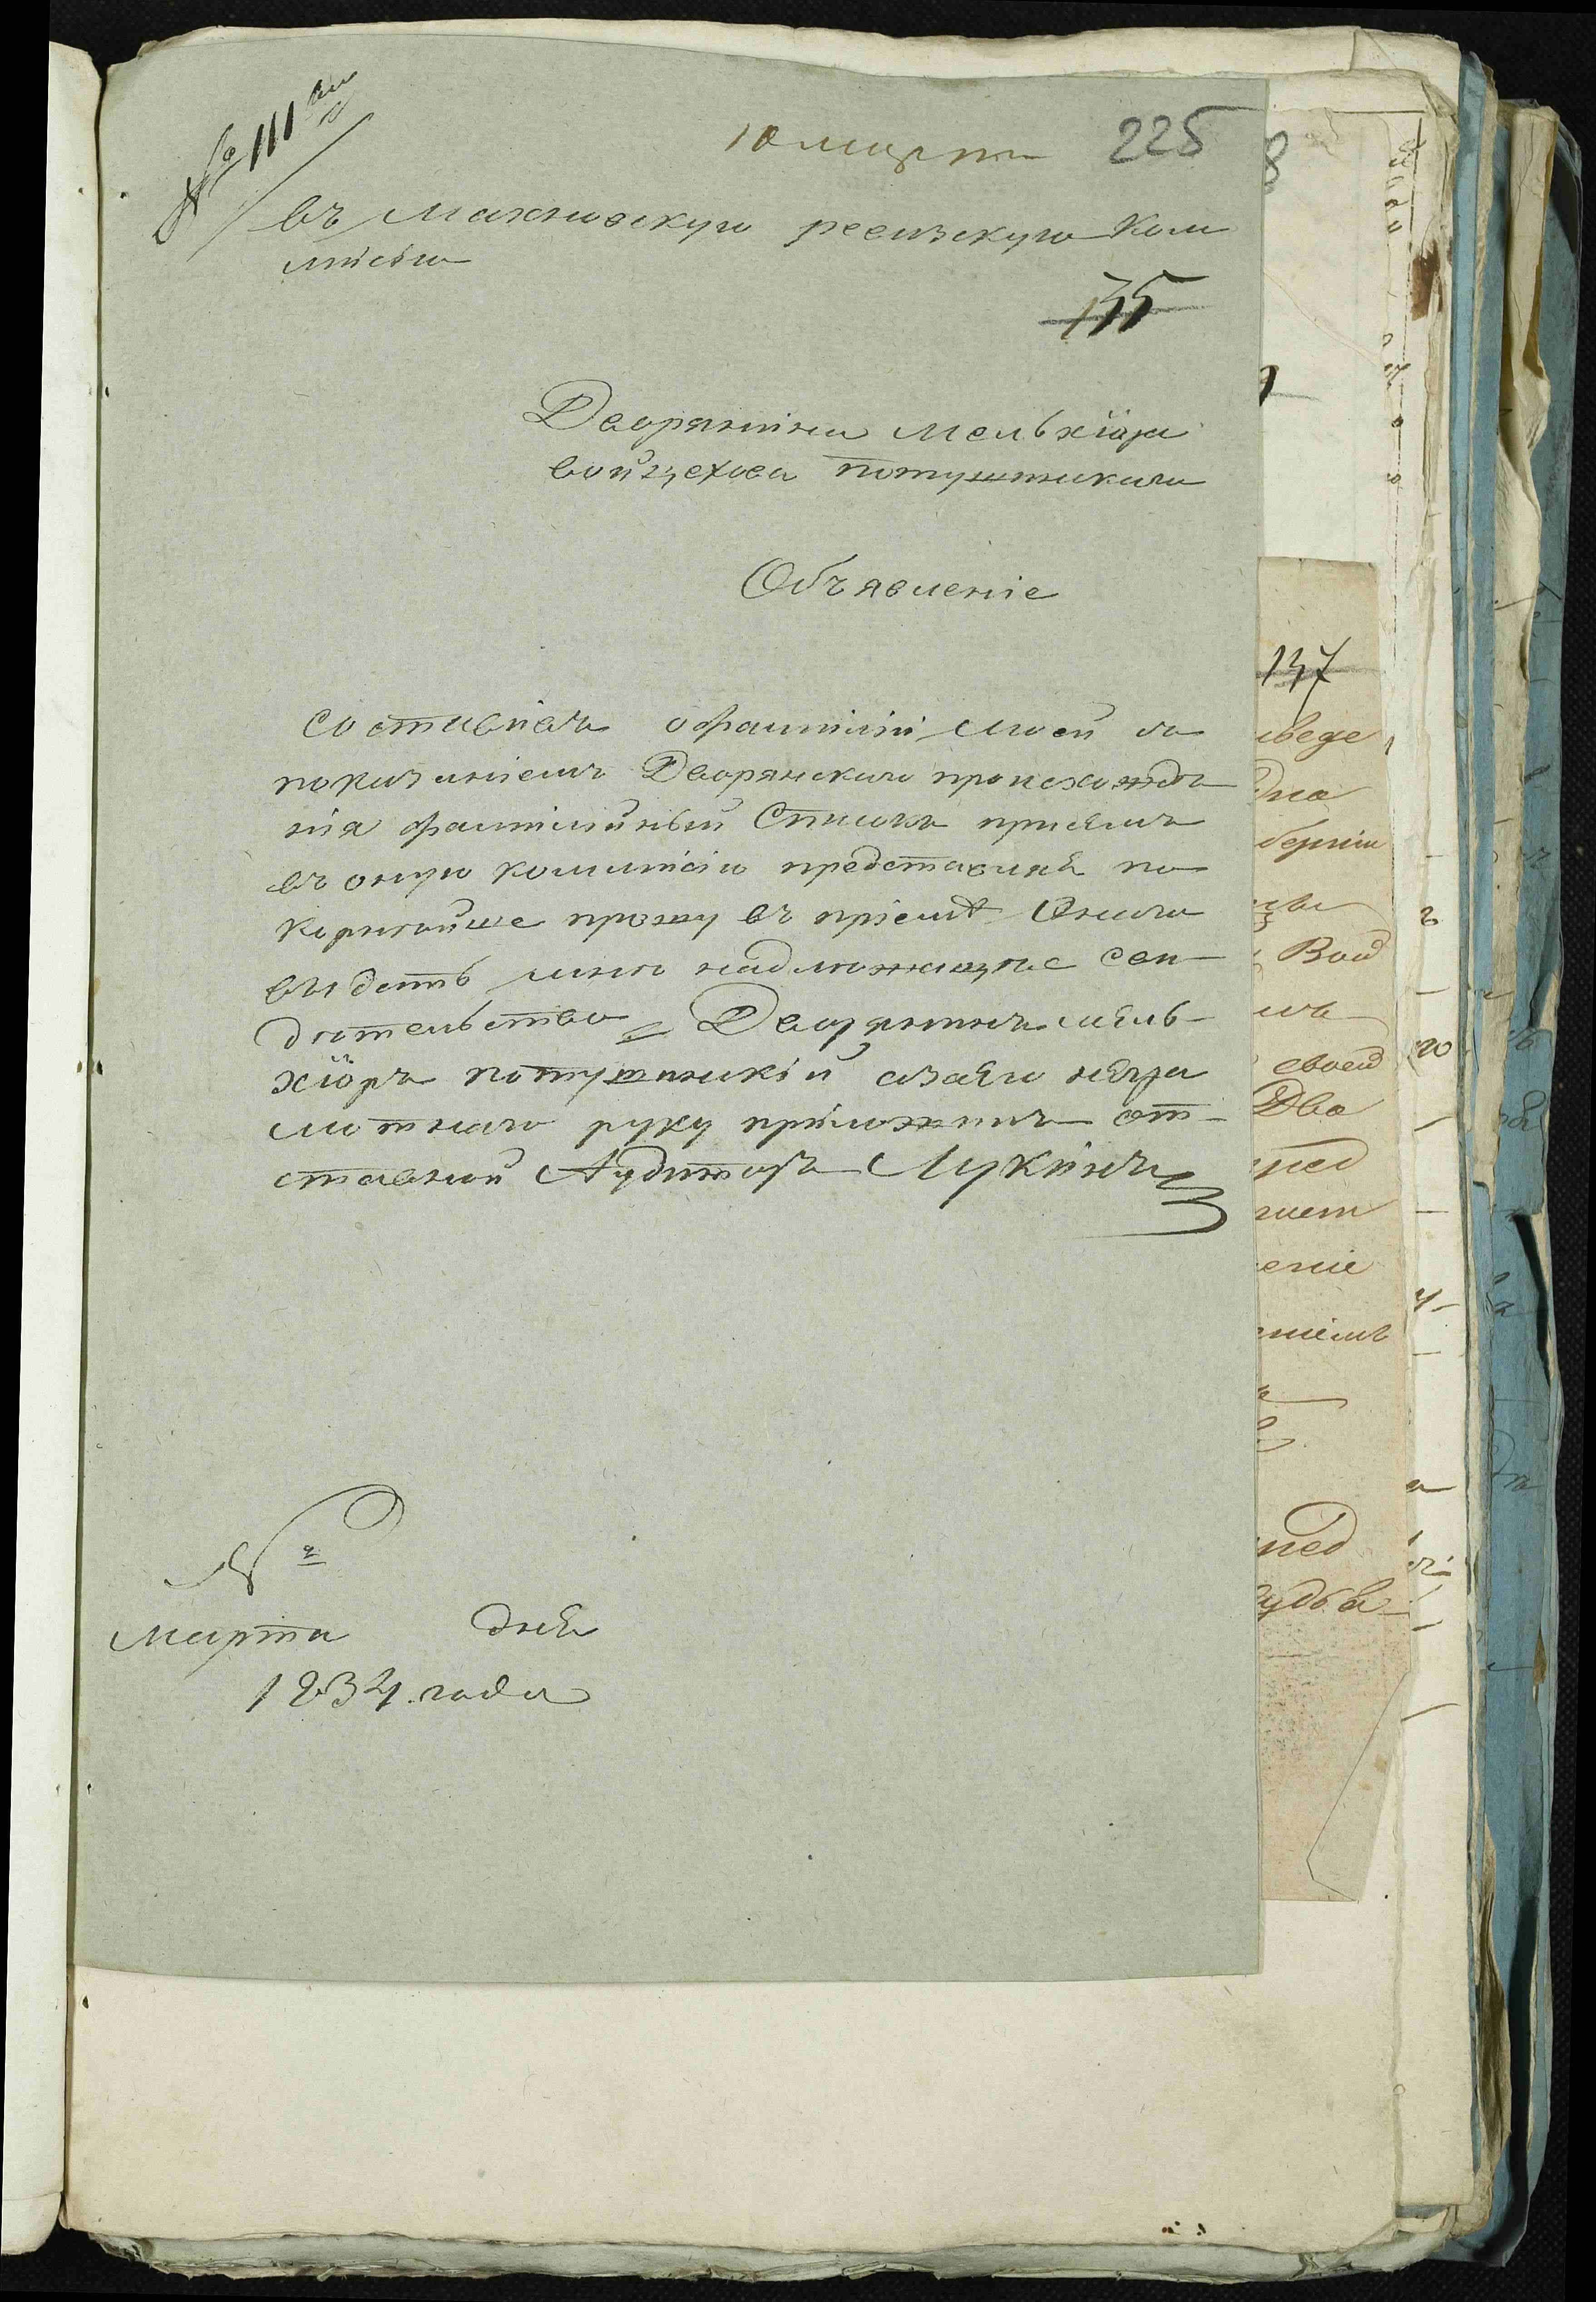 № 111
10 марта 225
въ Махновскую ревизскую Ком
мисію
135
Дворянина Мельхіора
войцехова Потушинскаго
Объявленіе
составивъ о фаміліи моей съ
показаніемъ Дворянскаго происхожде
нія фамилійный Списокъ при семъ
въ оную коммисію представляя по
корнейше прошу въ пріемѣ Онаго
выдать мнѣ надлежащее сви-
дѣтельство Дворянинъ мель-
хіоръ потушинскій а за его негра
мотнаго руку приложилъ от-
ставной Аудиторъ Лукинъ
№
марта дня
1834. года
137
Вой
своей
Два